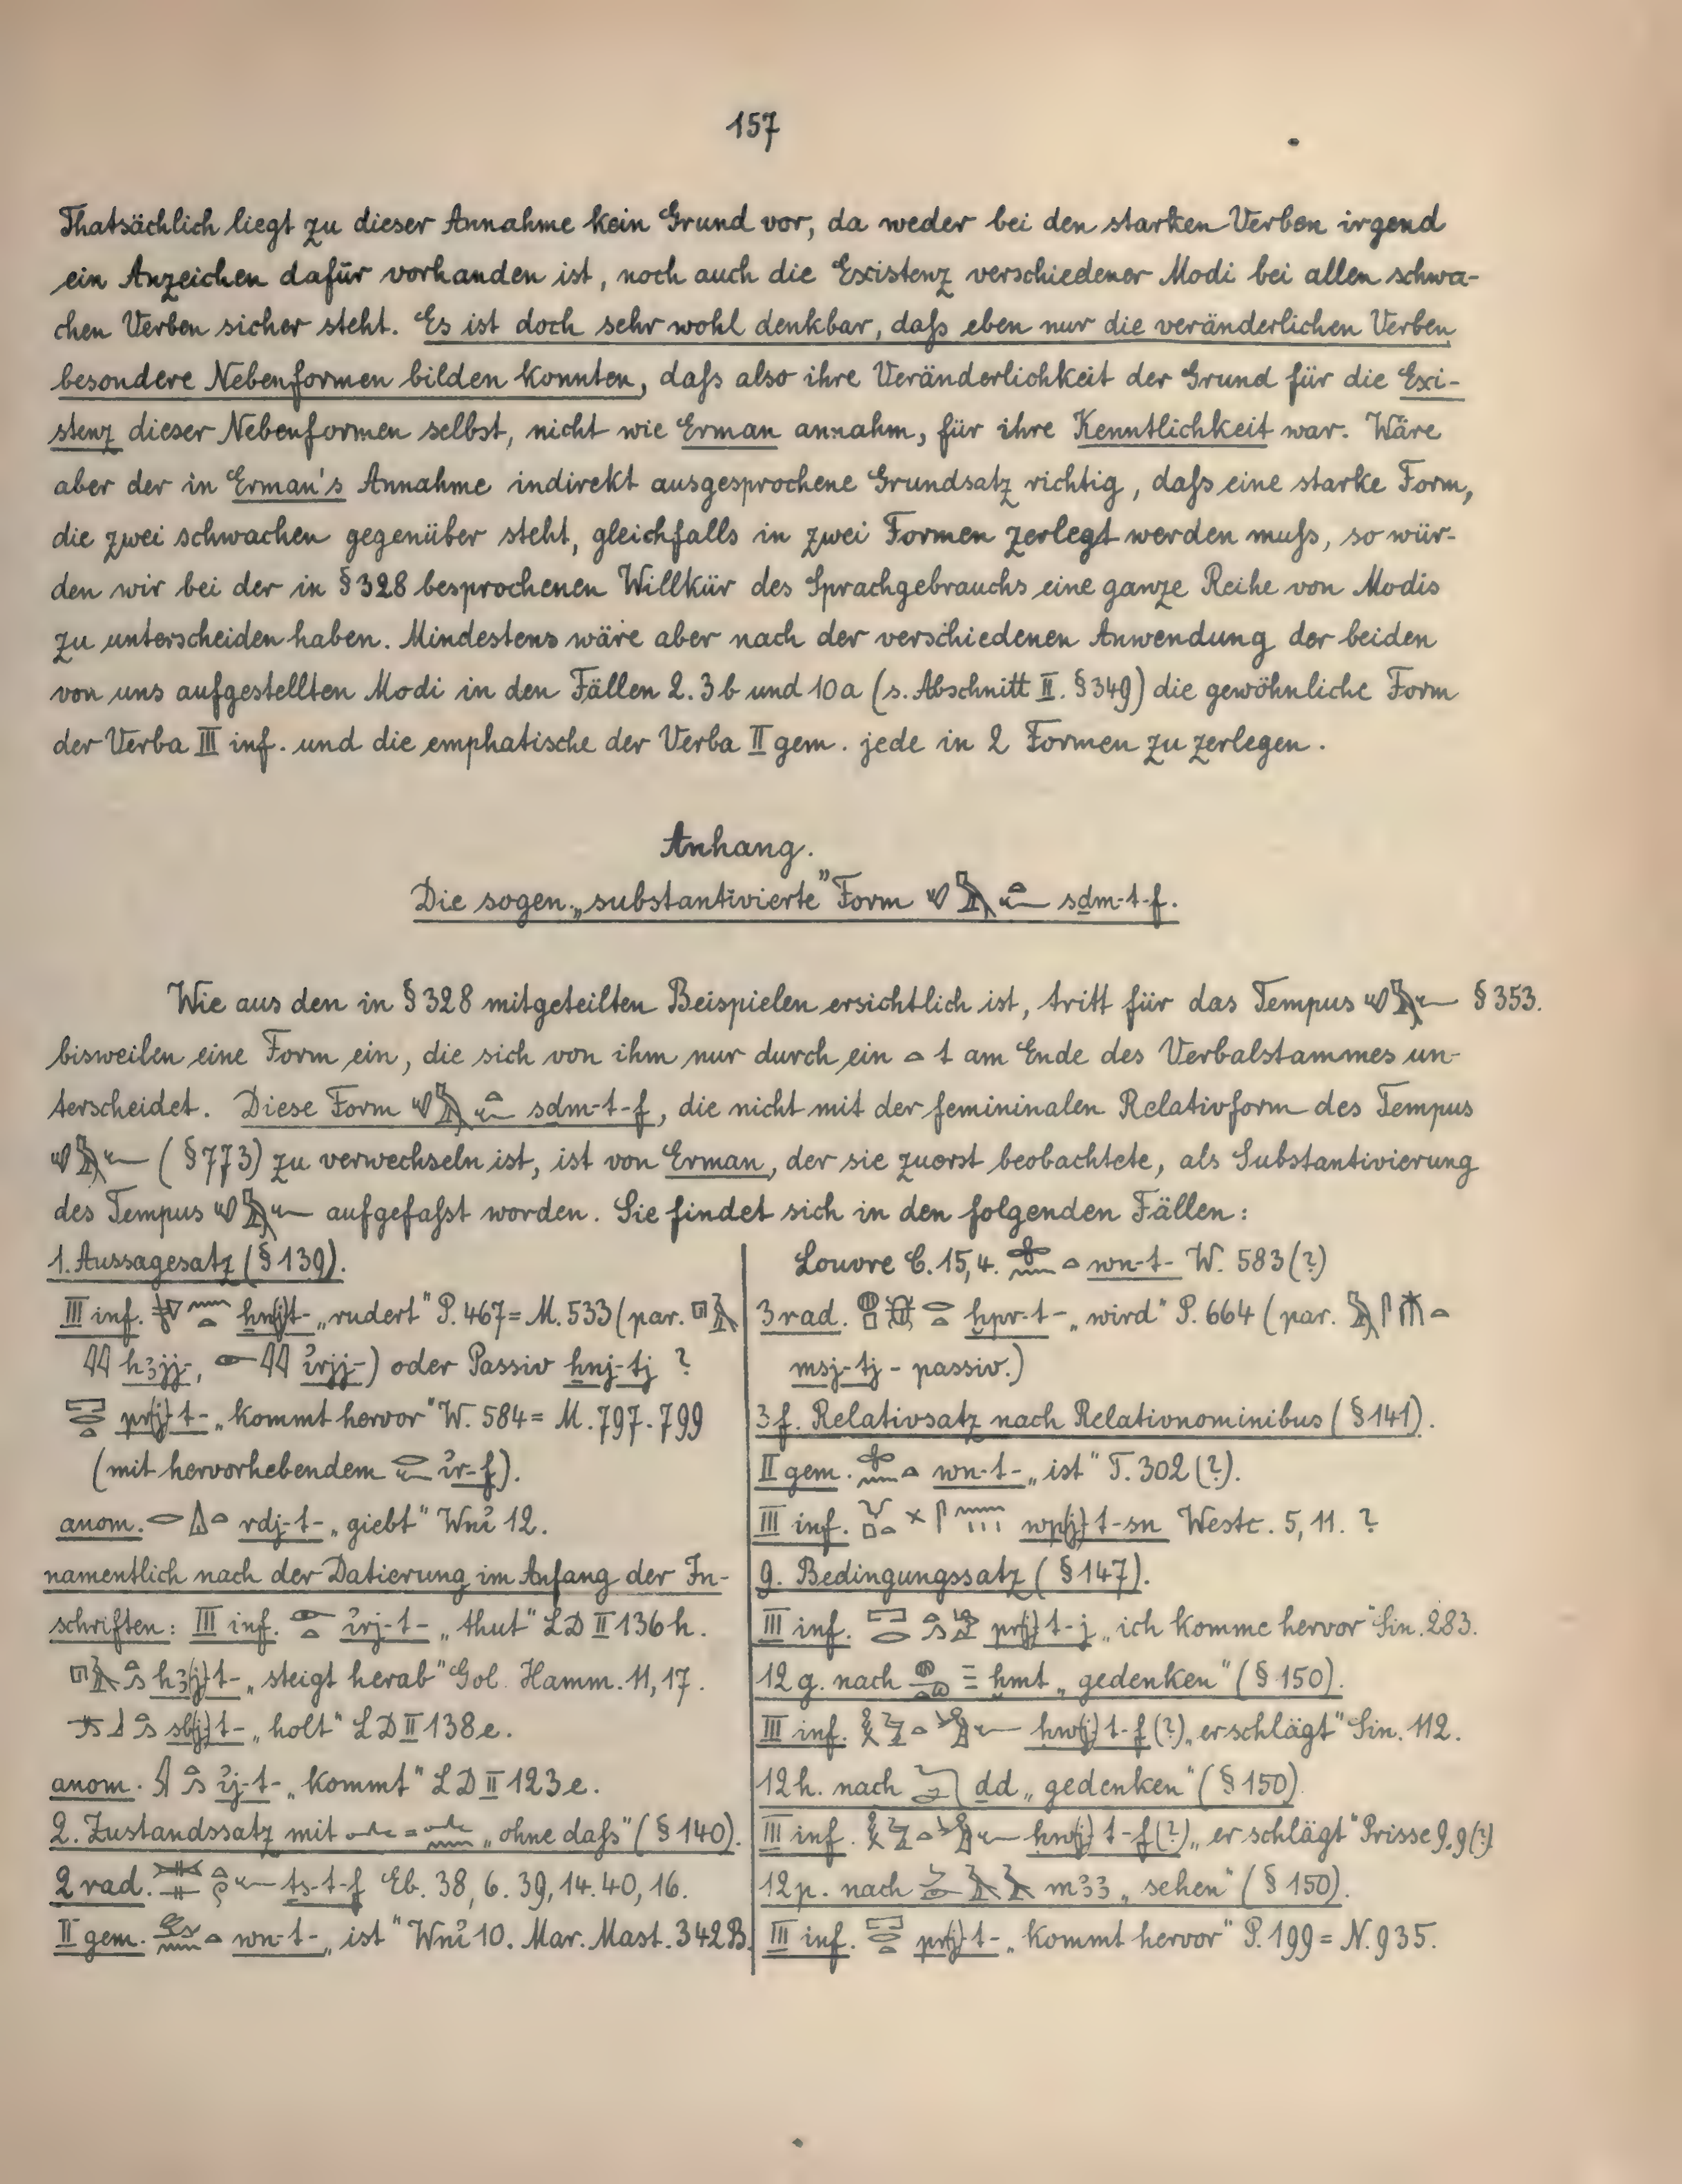 157
Thatsächlich liegt zu dieser Annahme kein Grund vor, da weder bei den starken Verben irgend
ein Anzeichen dafür vorhanden ist, noch auch die Existenz verschiedener Modi bei allen schwa-
chen Verben sicher steht. Es ist doch sehr wohl denkbar, daſs eben nur die veränderlichen Verben
besondere Nebenformen bilden konnten, daſs also ihre Veränderlichkeit der Grund für die Exi-
stenz dieser Nebenformen selbst, nicht wie Erman annahm, für ihre Kenntlichkeit war. Wäre
aber der in Erman's Annahme indirekt ausgesprochene Grundsatz richtig, daſs eine starke Form,
die zwei schwachen gegenüber steht, gleichfalls in zwei Formen zerlegt werden muſs, so wür-
den wir bei der in § 328 besprochenen Willkür des Sprachgebrauchs eine ganze Reihe von Modis
zu unterscheiden haben. Mindestens wäre aber nach der verschiedenen Anwendung der beiden
von uns aufgestellten Modi in den Fällen 2. 3b und 10a (s. Abschnitt II. § 349) die gewöhnliche Form
der Verba III inf. und die emphatische der Verba II gem. jede in 2 Formen zu zerlegen.
Anhang.
Die sogen. „substantivierte" Form sḏm-t-f.
Wie aus den in § 328 mitgeteilten Beispielen ersichtlich ist, tritt für das Tempus § 353.
bisweilen eine Form ein, die sich von ihm nur durch ein t am Ende des Verbalstammes un-
terscheidet. Diese Form sḏm-t-f, die nicht mit der femininalen Relativform des Tempus
(§ 773) zu verwechseln ist, ist von Erman, der sie zuerst beobachtete, als Substantivierung
des Tempus aufgefaſst worden. Sie findet sich in den folgenden Fällen:
1. Aussagesatz (§ 139).
III inf. ẖn(j)t- „rudert" P. 467 = M. 533 (par.
hꜣjj-, ı͗rjj-) oder Passiv ẖnj-tj ?
pr(j)t- „kommt hervor" W. 584 = M. 797. 799
(mit hervorhebendem ı͗r-f).
anom. rdj-t- „giebt" Wnı͗ 12.
namentlich nach der Datierung im Anfang der In-
schriften: III inf. ı͗rj-t- „thut" LD II 136 h.
hꜣ(j)t- „steigt herab" Gol. Hamm. 11, 17.
sb(j)t- „holt" LD II 138 e.
anom. ı͗j-t- „kommt" LD II 123 e.
2. Zustandssatz mit = „ohne daſs" (§ 140).
2 rad. ṯs-t-f Eb. 38, 6. 39, 14. 40, 16.
II gem. wn-t- „ist" Wnı͗ 10. Mar. Mast. 342 B.
Louvre C. 15, 4. wn-t- W. 583 (?)
3 rad. ḫpr-t- „wird" P. 664 (par.
msj-tj - passiv.)
3 f. Relativsatz nach Relativnominibus (§ 141).
II gem. wn-t- „ist" T. 302 (?).
III inf. wp(j)t-sn Westc. 5, 11. ?
9. Bedingungssatz (§ 147).
III inf. pr(j)t-j „ich komme hervor" Sin. 283.
12 g. nach ḫmt „gedenken" (§ 150).
III inf. ḥw(j)t-f (?) „er schlägt" Sin. 112.
12 h. nach ḏd „gedenken" (§ 150)
III inf. ḥw(j)t-f (?) „er schlägt" Prisse 9, 9 (?)
12 p. nach mꜣꜣ „sehen" (§ 150).
III inf. pr(j)t- „kommt hervor" P. 199 = N. 935.